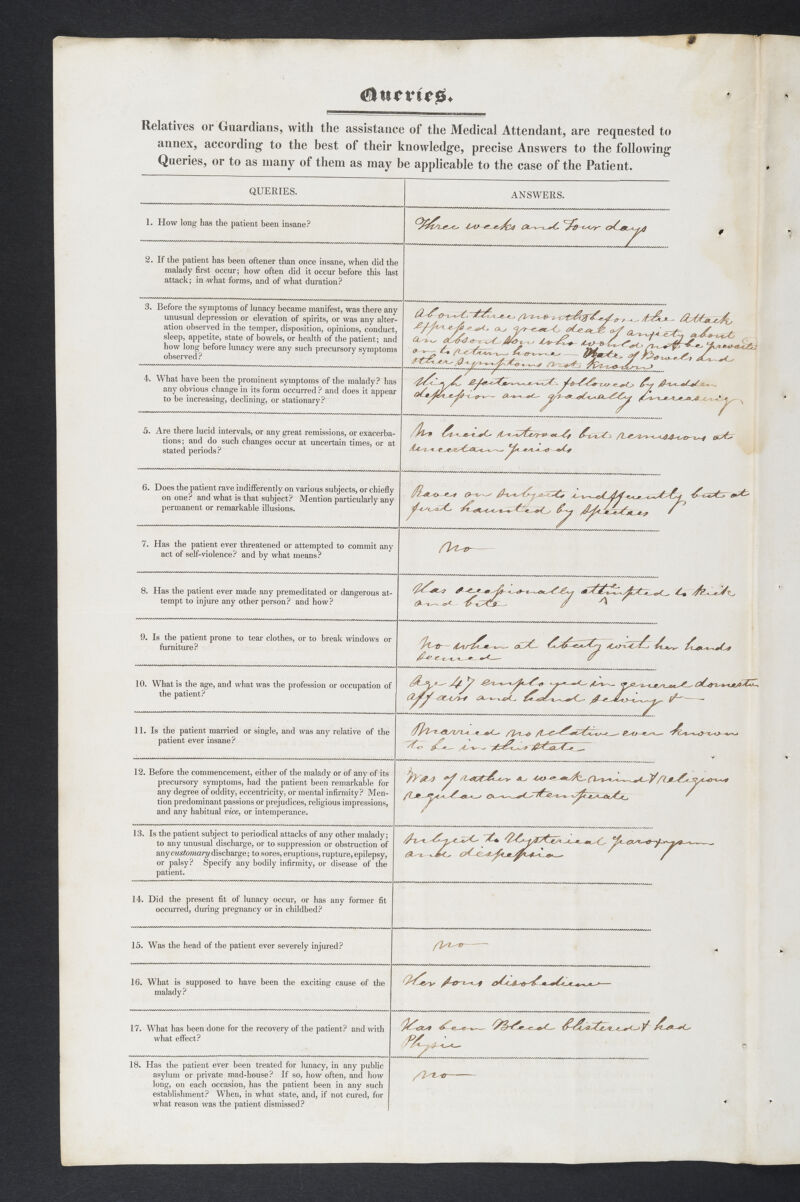 Queries.
Relatives or Guardians, with the assistance of the Medical Attendant, are requested to
annex, according to the best of their knowledge, precise Answers to the following
Queries, or to as many of them as may be applicable to the case of the Patient.
QUERIES.
ANSWERS.
1. How long has the patient been insane?
Three weeks and Four days
2. If the patient has been oftener than once insane, when did the
malady first occur; how often did it occur before this last
attack; in what forms, and of what duration?
3. Before the symptoms of lunacy became manifest, was there any
unusual depression or elevation of spirits, or was any alter-
ation observed in the temper, disposition, opinions, conduct,
sleep, appetite, state of bowels, or health of the patient; and
how long before lunacy were any such precursory symptoms
observed?
About three months before the Attack
expressed a great deal of anxiety about
an absent Son who would not be prevailed
on to return home — State of Bowels and
other Symptoms not known
4. What have been the prominent symptoms of the malady? has
any obvious change in its form occurred? and does it appear
to be increasing, declining, or stationary?
High excitement followed by sudden
depression and gradually increasing
5. Are there lucid intervals, or any great remissions, or exacerba-
tions; and do such changes occur at uncertain times, or at
stated periods?
No lucid intervals but remissions at
uncertain periods
6. Does the patient rave indifferently on various subjects, or chiefly
on one? and what is that subject? Mention particularly any
permanent or remarkable illusions.
Raves on subjects indifferently, but at
first haunted by Spectres
7. Has the patient ever threatened or attempted to commit any
act of self-violence? and by what means?
No —
8. Has the patient ever made any premeditated or dangerous at-
tempt to injure any other person? and how?
Has occasionally attempted to Kick
and bite
9. Is the patient prone to tear clothes, or to break windows or
furniture?
No when at liberty with her hands
secured
10. What is the age, and what was the profession or occupation of
the patient?
Age 47 employed in general domestic
affairs and hand sewing &—
11. Is the patient married or single, and was any relative of the
patient ever insane?
Married no relative ever known
to be in this state
12. Before the commencement, either of the malady or of any of its
precursory symptoms, had the patient been remarkable for
any degree of oddity, eccentricity, or mental infirmity? Men-
tion predominant passions or prejudices, religious impressions,
and any habitual vice, or intemperance.
Was of rather a weak mind & religious
regular and temperate
13. Is the patient subject to periodical attacks of any other malady;
to any unusual discharge, or to suppression or obstruction of
any customary discharge; to sores, eruptions, rupture, epilepsy,
or palsy? Specify any bodily infirmity, or disease of the
patient.
Subject to Hysterical paroxysm
and dispepsia
14. Did the present fit of lunacy occur, or has any former fit
occurred, during pregnancy or in childbed?
15. Was the head of the patient ever severely injured?
no —
16. What is supposed to have been the exciting cause of the
malady?
Her sons disobedience
17. What has been done for the recovery of the patient? and with
what effect?
Has been Bleed blistered & had
Physic
18. Has the patient ever been treated for lunacy, in any public
asylum or private mad-house? If so, how often, and how
long, on each occasion, has the patient been in any such
establishment? When, in what state, and, if not cured, for
what reason was the patient dismissed?
no —